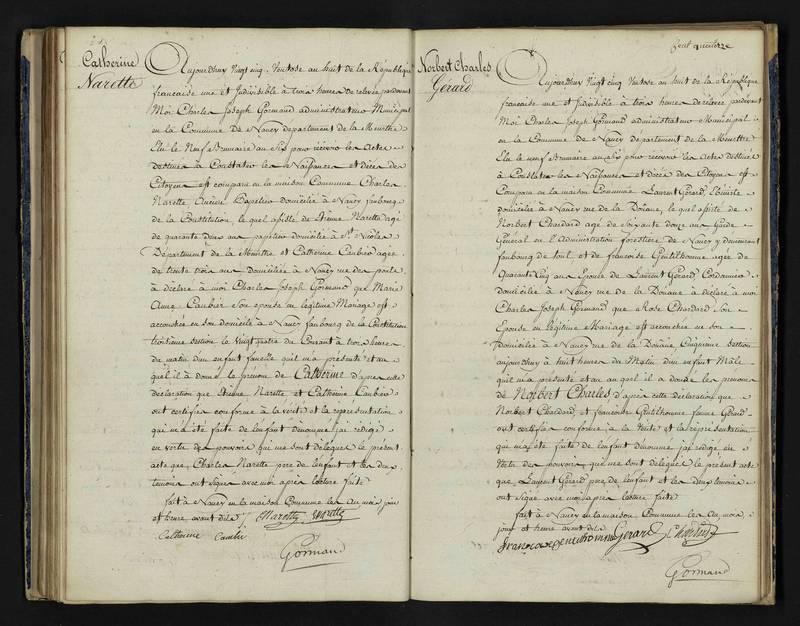 Catherine
Narette
Aujourdhuy vingt cinq Ventose an huit de la République
francaise une et Indivisible à trois heures de relevée pardevant
Moi Charles Joseph Gormand administrateur Municipal
en la Commune De Nancy departement de la Meurthe
Elu le Neuf Brumaire an Six pour recevoir les Actes
Destinés à Constater les Naissances et décès des
Citoyens est comparu en la maison Commune Charles
Narette Papetier domicilié à Nancy faubourg
de la Constitution, le quel assisté de Etienne Narette agé
de quarante Deux ans papetier domicilié à St Nicolas
Département de la Meurthe et Catherine Caubier agée
de trente trois ans domiciliée à Nancy rue des
à déclaré à moi Charles Joseph Gormand que Marie
Anne Caubier Son epouse en legitime Mariage est
accouchée en son domicile à Nancy faubourg de la Constitution
troisieme section le vingt quatre du Courant à trois heures
du matin d'un enfant femelle quil m'a présenté et au
quel il à donné le prénom de Catherine d'après cette
déclaration que Etienne Narette et Catherine Caubier
ont certifié conforme à la verité et la représentation
qui m'a été faite de lenfant dénommé jai rédigé
en vertu des pouvoirs qui me sont délégués le présent
acte que Charles Narette pere de lenfant et les deux
temoins ont signés avec moi après lecture faite
fait à Nancy en la maison Commune les an mois jour
et heure avant dits Narette Narette
Catherine
Gormand
Cent quatorze
Norbert Charles
Gérard
Aujourdhuy Vingt cinq Ventose an huit de la République
francaise une et Indivisible à trois heures de relevée pardevant
Moi Charles Joseph Gormand administrateur Municipal
en la Commune De Nancy departement de la Meurthe
Elu le neuf Brumaire an Six pour recevoir les Actes destinés
à Constater les Naissances et Décès des Citoyens est
Comparu en la maison Commune Laurent Gérard
domicilié à Nancy rue de la Douane, le quel assisté de
Norbert Chardard agé de Soixante douze ans Garde
Général en l'administration forestière de Nancy y demeurant
faubourg de toul et de francoise Gentilhomme agée de
Quarante Cinq ans Epouse de Laurent Gérard Cordonnier
Domiciliée à Nancy rue de la Douane à déclaré à moi
Charles Joseph Gormand que Rose Chardard Son
Epouse en légitime Mariage est accouchée en son
Domicile à Nancy rue de la Douane Cinquieme section
aujourdhuy à huit heures du Matin d'un enfant Mâle
quil m'a présenté et au quel il a donné les prenoms
de Norbert Charles d'après cette déclaration que
Norbert Chardard et francoise Gentilhomme femme Gérard
ont certifié conforme à la Verité et la représentation
qui m'a été faite de lenfant dénommé jai rédigé en
Vertu des pouvoirs qui me sont délégués le présent acte
que Laurent Gérard pere de lenfant et les Deux temoins
ont signé avec moi après lecture faite
fait à Nancy en la maison Commune les An mois
jour et heure avant dits
francoise gentilhomme Gerard Chardard
Gormand